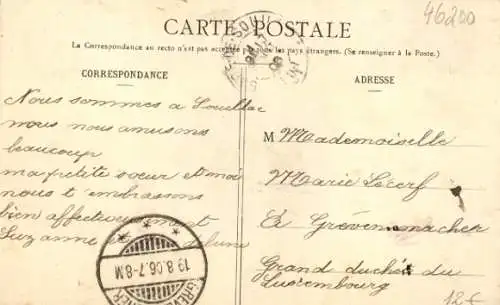 46200
CARTE POSTALE
La Correspondance au recto n'est pas acceptée par tous les pays étrangers. (Se renseigner à la Poste.)
CORRESPONDANCE
Nous sommes a Souillac
nous nous amusons
beaucoup
ma petite soeur et moi
nous t'embrassons
bien affectueusement
Suzanne
19.8.06.7-8M
ADRESSE
M Mademoiselle
Marie Lecerf
à Grevenmacher
Grand duché du
Luxembourg
12€